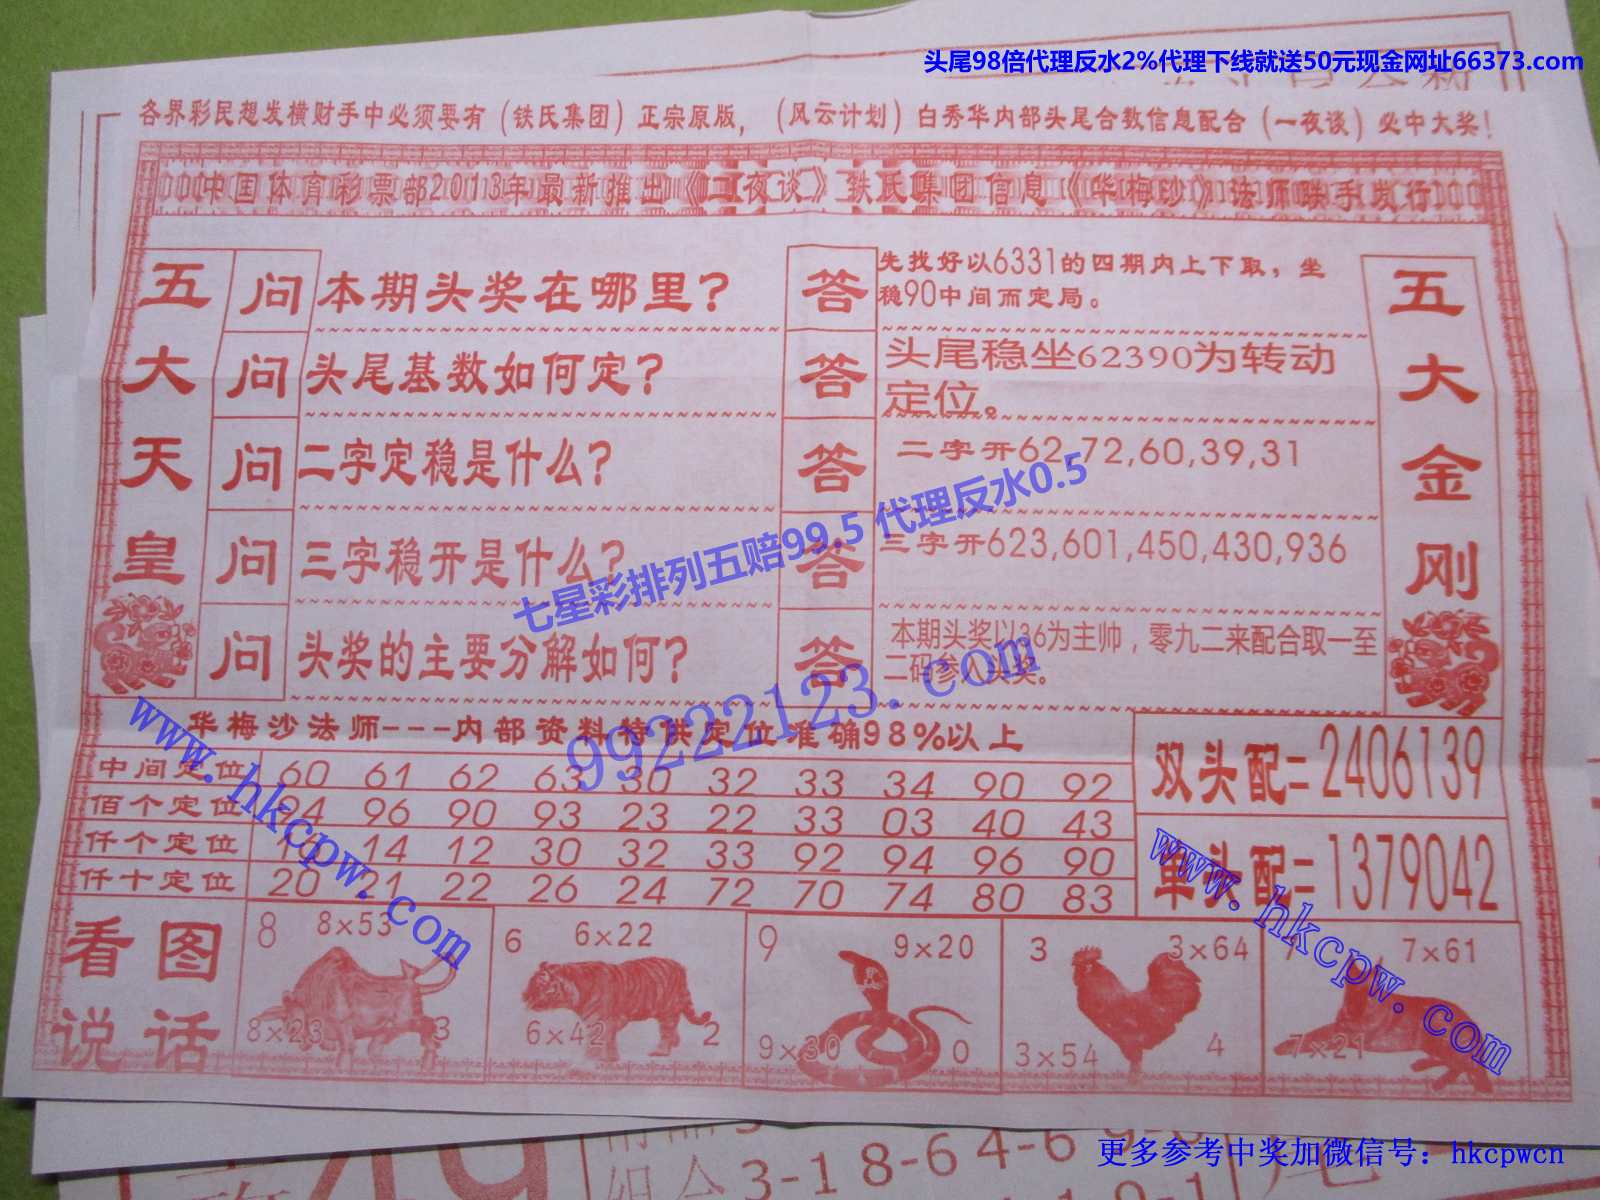 头尾98倍代理反水2%代理下线就送50元现金网址66373.com
各界彩民想发横财手中必须要有(铁氏集团)正宗原版,(风云计划)白秀华内部头尾合数信息配合(一夜谈)必中大奖!
中国体育彩票部2013年最新推出《一夜谈》铁氏集团信息《华梅沙》法师联手发行
五大天皇
问 本期头奖在哪里?
答 先找好以6331的四期内上下取,坐
稳90中间而定局。
问 头尾基数如何定?
答 头尾稳坐62390为转动
定位。
问 二字定稳是什么?
答 二字开62,72,60,39,31
问 三字稳开是什么?
答 三字开623,601,450,430,936
问 头奖的主要分解如何?
答 本期头奖以36为主帅,零九二来配合取一至
二码参入头奖。
五大金刚
七星彩排列五赔99.5 代理反水0.5
99222123.com
www.hkcpw.com
华梅沙法师---内部资料特供定位准确98%以上
中间定位 60 61 62 63 30 32 33 34 90 92
佰个定位 94 96 90 93 23 22 33 03 40 43
仟个定位 14 12 30 32 33 92 94 96 90
仟十定位 20 21 22 26 24 72 70 74 80 83
双头配=2406139
单头配=1379042
www.hkcpw.com
看图
说话
8 8×53
8×23 3
6 6×22
6×42 2
9 9×20
9×30 0
3 3×64
3×54 4
7 7×61
7×21
组合3-18-64-69-0
更多参考中奖加微信号：hkcpwcn